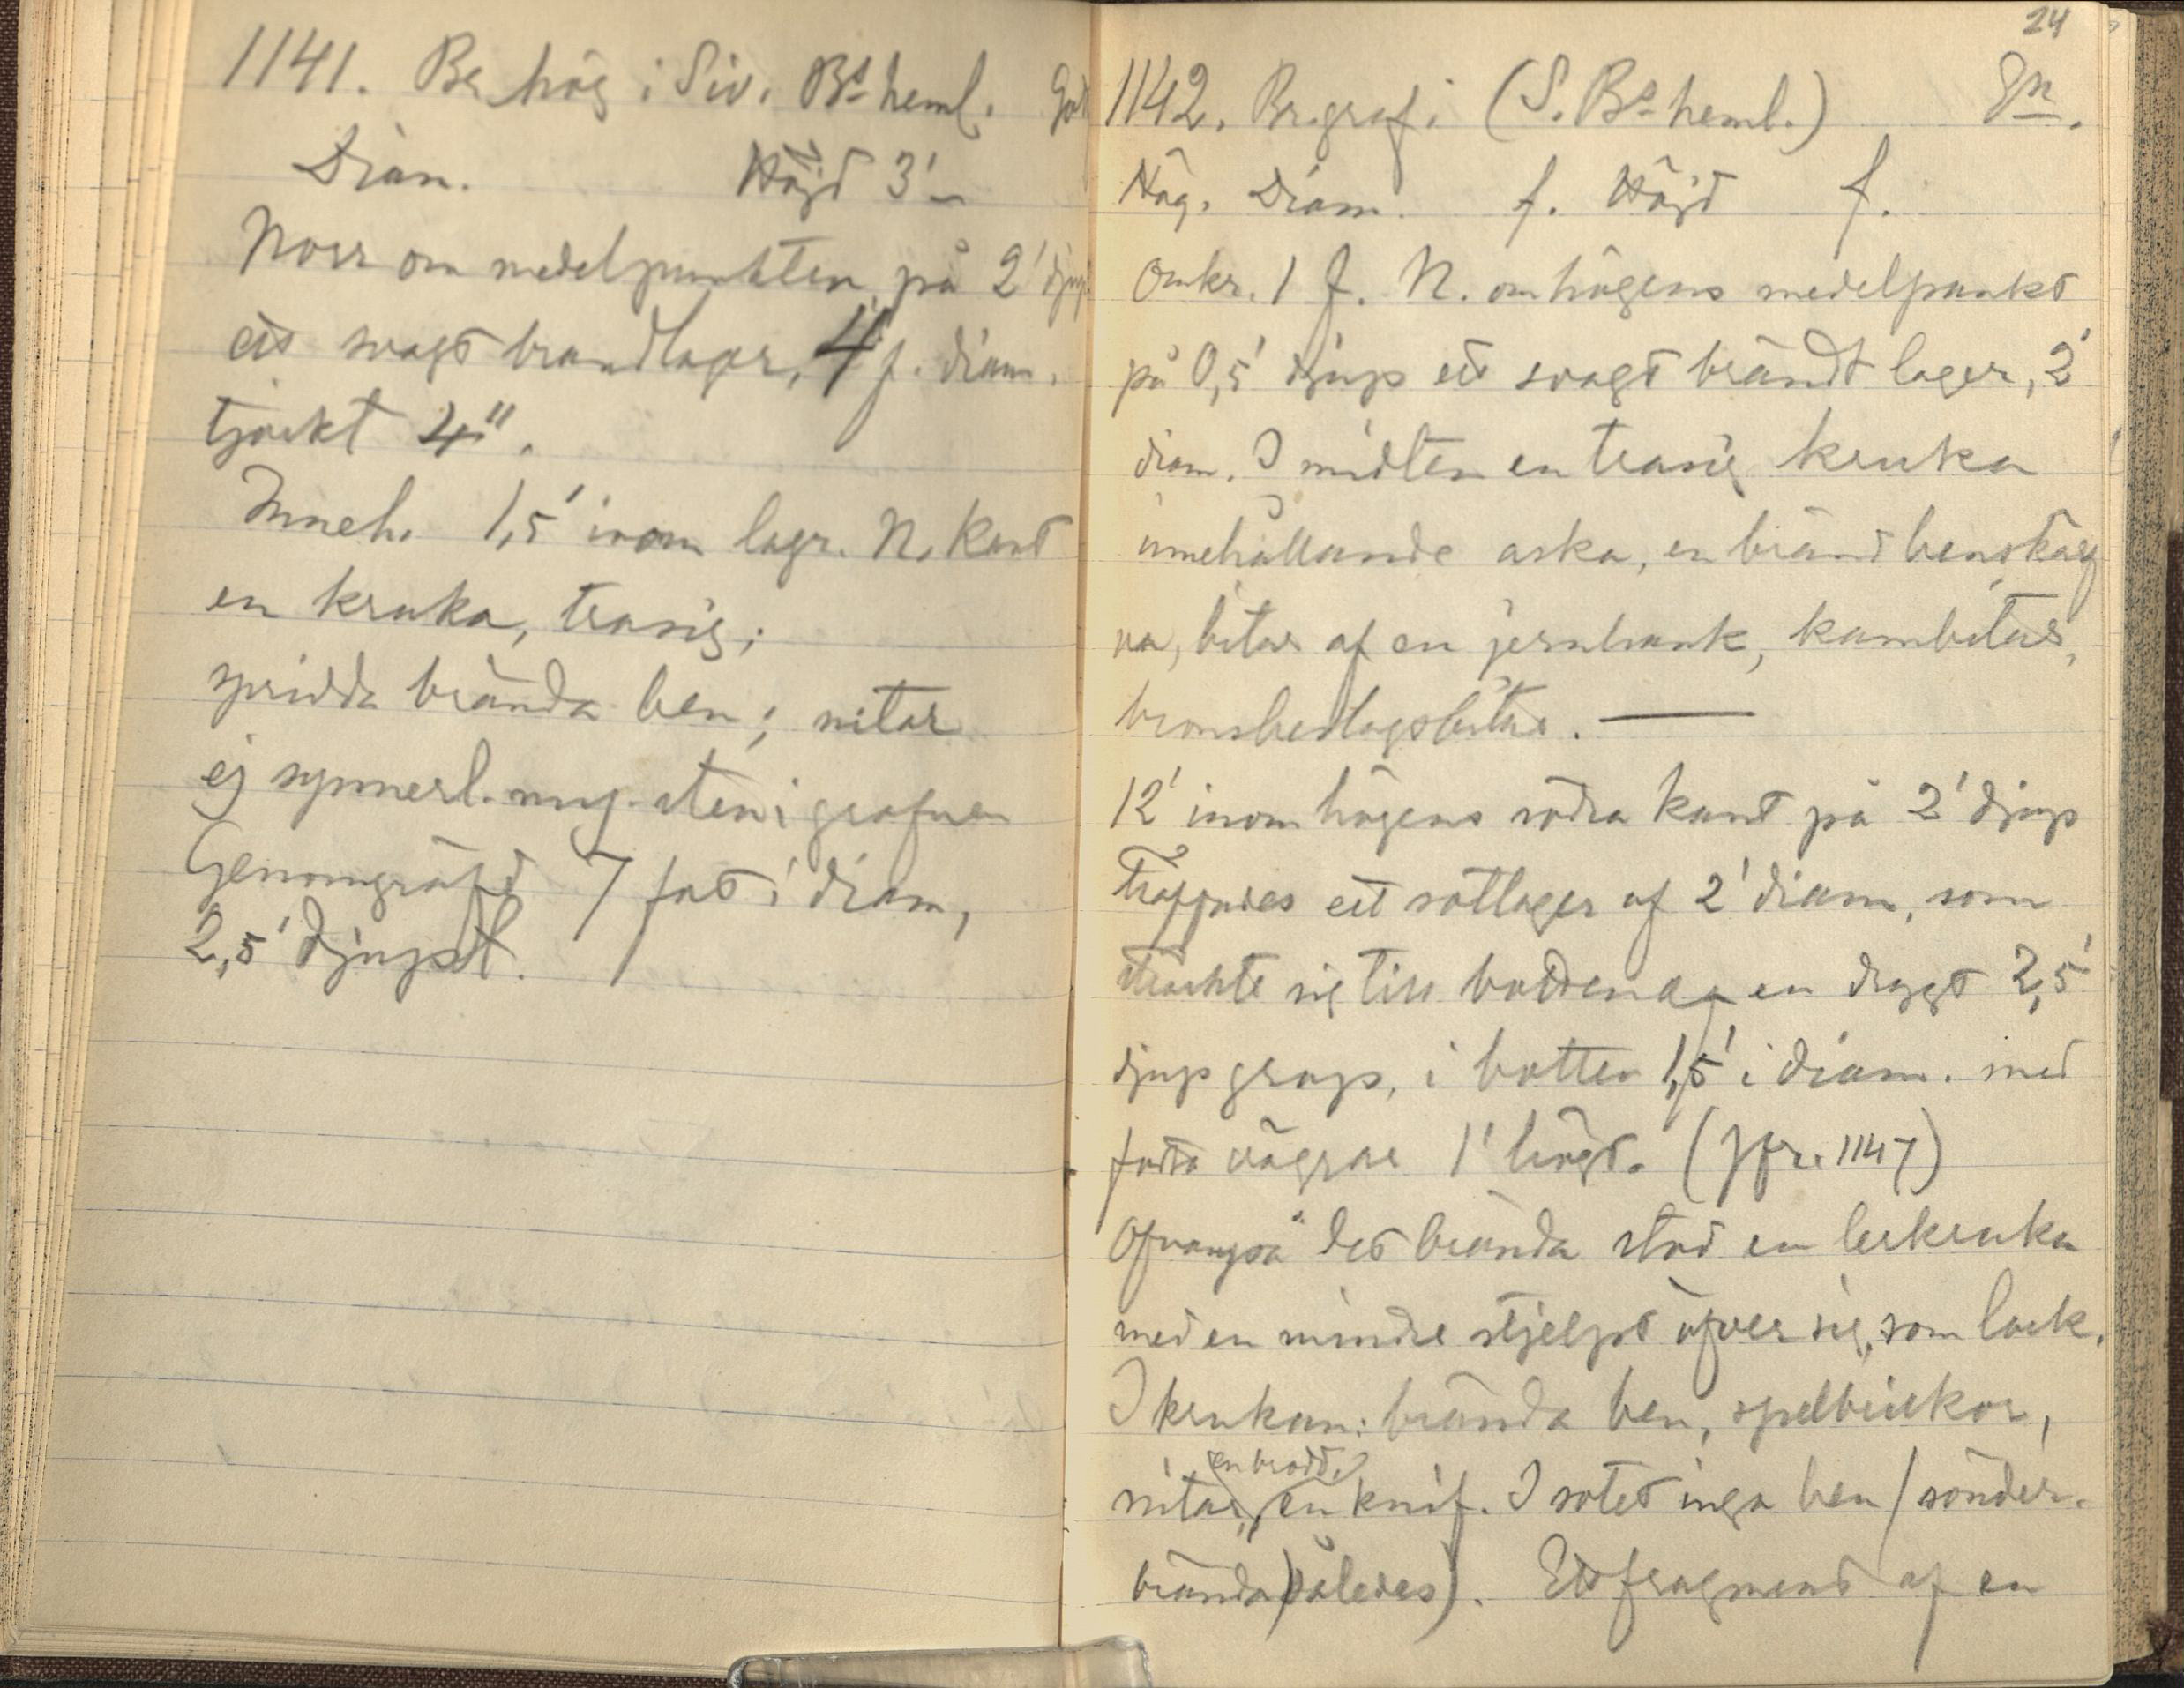 1141. Br. hög i Siv. Bs heml.
Diam. Höjd 3'
Norr om medelpunkten på 2' djup
ett svagt brandlager, 4 f. diam.
tjockt 4".
Inneh. 1,5' inom lagr. N. kant
en kruka, trasig;
spridda brända ben; nitar
ej synnerl. myc. sten i grafven
Genomgräfd 7 fot i diam,
2,5' djupt.
24
1142. Br. graf i (S. Bs heml.)
Hög. Diam. f. Höjd f.
Omkr. 1 f. N. om högens medelpunkt
på 0,5' djup ett svagt brändt lager, 2'
diam. I midten en trasig kruka
innehållande aska, en bränd benskärf
va, bitar af en jernhank, kambitar,
bronsbeslagsbitar. —
12' inom högens södra kant på 2' djup
träffades ett sotlager af 2' diam, som
sträckte sig till bottten af en drygt 2,5'
djup grop, i botten 1,5' i diam. med
fasta väggar 1' högt. (Jfr. 1147)
Ofvanpå det brända stod en lerkruka
med en mindre stjelpt öfver sig, som lock.
I krukan: brända ben, spelbrickor,
en brodd,
nitar, en knif. I sotet inga ben (sönder-
brända således). Ett fragment af en